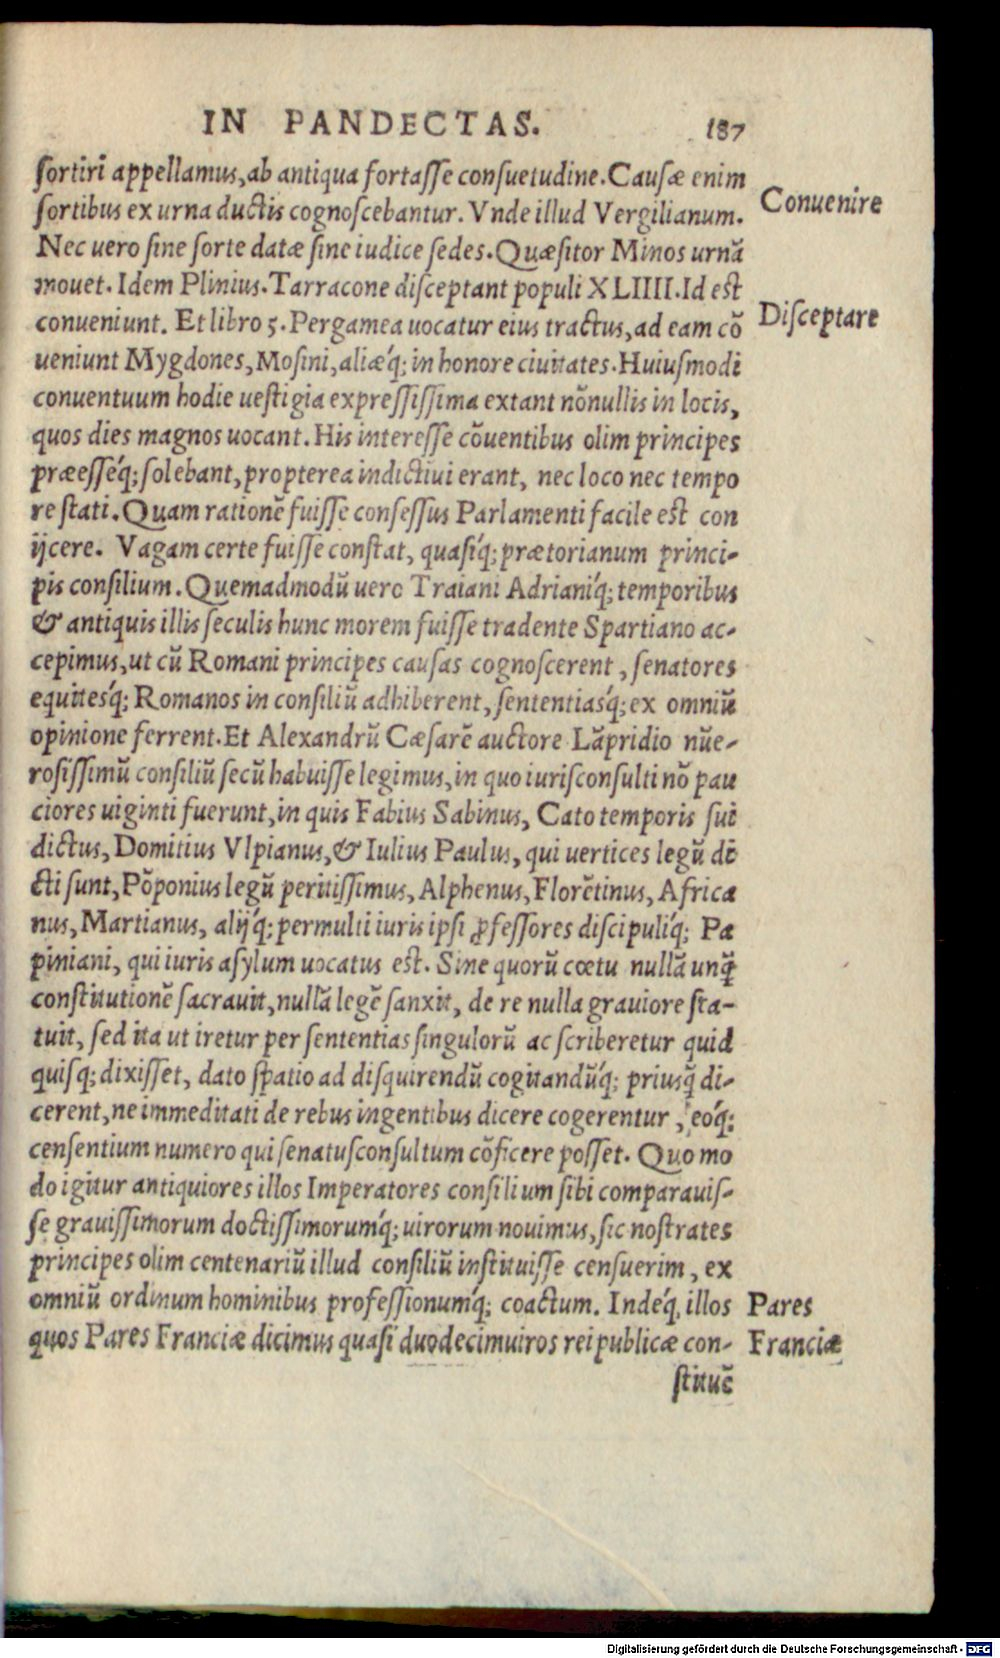 IN PANDECTAS. 187
sortiri appellamus, ab antiqua fortasse consuetudine. Causæ enim
sortibus ex urna ductis cognoscebantur. Vnde illud Vergilianum.
Convenire
Nec uero sine sorte datæ sine iudice sedes. Quæsitor Minos urnã
mouet. Idem Plinius. Tarracone disceptant populi XLIIII. Id est
conueniunt. Et libro 5. Pergamea uocatur eius tractus, ad eam cõ
Disceptare
ueniunt Mygdones, Mosini, aliæq́; in honore ciuitates. Huiusmodi
conuentuum hodie uestigia expressissima extant nõnullis in locis,
quos dies magnos uocant. His interesse cõuentibus olim principes
præesseq́; solebant, propterea indictiui erant, nec loco nec tempo
re stati. Quam rationẽ fuisse consessus Parlamenti facile est con
ijcere. Vagam certe fuisse constat, quasiq́; prætorianum princi-
pis consilium. Quemadmodũ uero Traiani Adrianiq́; temporibus
& antiquis illis seculis hunc morem fuisse tradente Spartiano ac-
cepimus, ut cũ Romani principes causas cognoscerent, senatores
equitesq́; Romanos in consiliũ adhiberent, sententiasq́; ex omniũ
opinione ferrent. Et Alexandrũ Cæsarẽ auctore Lãpridio nũe-
rosissimũ consiliũ secũ habuisse legimus, in quo iurisconsulti nõ pau
ciores uiginti fuerunt, in quis Fabius Sabinus, Cato temporis sui
dictus, Domitius Vlpianus, & Iulius Paulus, qui uertices legũ di
cti sunt, Põponius legũ peritissimus, Alphenus, Florẽtinus, Africa
nus, Martianus, alijq́; permulti iuris ipsi ꝓfessores discipuliq́; Pa
piniani, qui iuris asylum uocatus est. Sine quorũ cœtu nullã unq̃
constitutionẽ sacrauit, nullã legẽ sanxit, de re nulla grauiore sta-
tuit, sed ita ut iretur per sententias singulorũ ac scriberetur quid
quisq; dixisset, dato spatio ad disquirendũ cogitandũq́; priusq̃ di-
cerent, ne immeditati de rebus ingentibus dicere cogerentur, eoq́;
censentium numero qui senatusconsultum cõficere posset. Quo mo
do igitur antiquiores illos Imperatores consilium sibi comparauis-
se grauissimorum doctissimorumq́; uirorum nouimus, sic nostrates
principes olim centenariũ illud consiliũ instituisse censuerim, ex
omniũ ordinum hominibus professionumq́; coactum. Indeq́, illos
Pares
quos Pares Franciæ dicimus quasi duodecimuiros reipublicæ con-
Franciæ
stituẽ
Digitalisierung gefördert durch die Deutsche Forschungsgemeinschaft - DFG